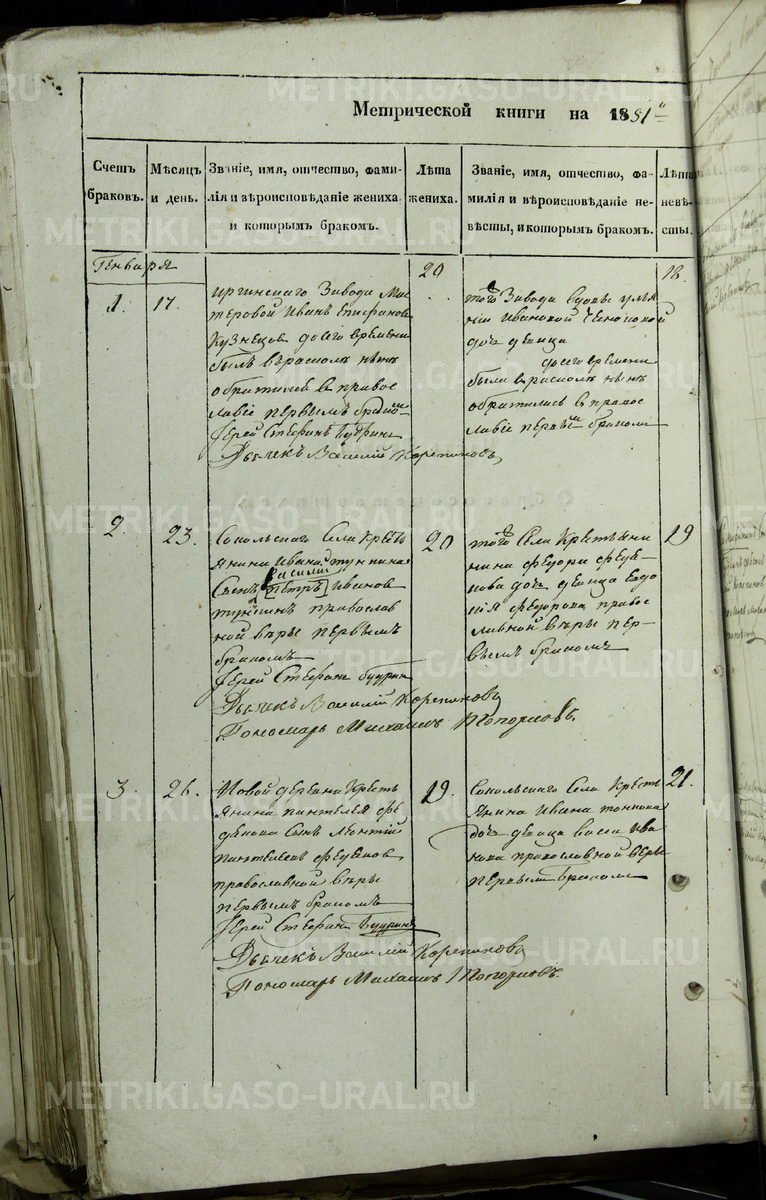 Метрической книги на 1851
Счетъ браковъ.
Мѣсяцъ и день.
Званіе, имя, отчество, фами-
лія и вѣроисповѣданіе жениха
и которымъ бракомъ.
Лѣта
жениха.
Званіе, имя, отчество, фа-
милія и вѣроисповѣданіе не-
вѣсты, и которымъ бракомъ.
Лѣта
невѣ-
сты.
Генваря
1.
17.
Иргинскаго Завода Мас
теровой Иванъ Епифановъ
Кузнецов до сего времени
былъ в расколѣ нынѣ
обратился в правос
лавіе первымъ бракомъ
Іерей Стефанъ Будринъ
Дьячекъ Василій Корепановъ
20
того Завода вдовы
Ивановой
дочь девица
до сего времени
была в расколѣ нынѣ
обратилась в правос
лавіе первымъ бракомъ
18.
2.
23.
Сокольскаго Села Кресть
янина Ивана Тункина
Сынъ Василий [Петръ] Иванов
Тункинъ православ
ной вѣры первымъ
бракомъ
Іерей Стефанъ Будринъ
Дьячекъ Василій Корепановъ
Пономарь Михаилъ Топорковъ.
20
того Села Крестьяни
нина Федора
дочь девица Евдо
кія Федорова правос
лавной вѣры пер
вымъ бракомъ
19
3.
26.
Новой деревни Кресть
янина Пантелея Фе
денова Сынъ Леонтій
Пантелеевъ Феденовъ
православной вѣры
первымъ бракомъ
Іерей Стефанъ Будринъ
Дьячекъ Василій Корепановъ
Пономарь Михаилъ Топорковъ.
19.
Сокольскаго Села Кресть
янина Ивана
дочь девица Васса Ива
нова православной веры
первымъ бракомъ
21.
METRIKI.GASO-URAL.RU